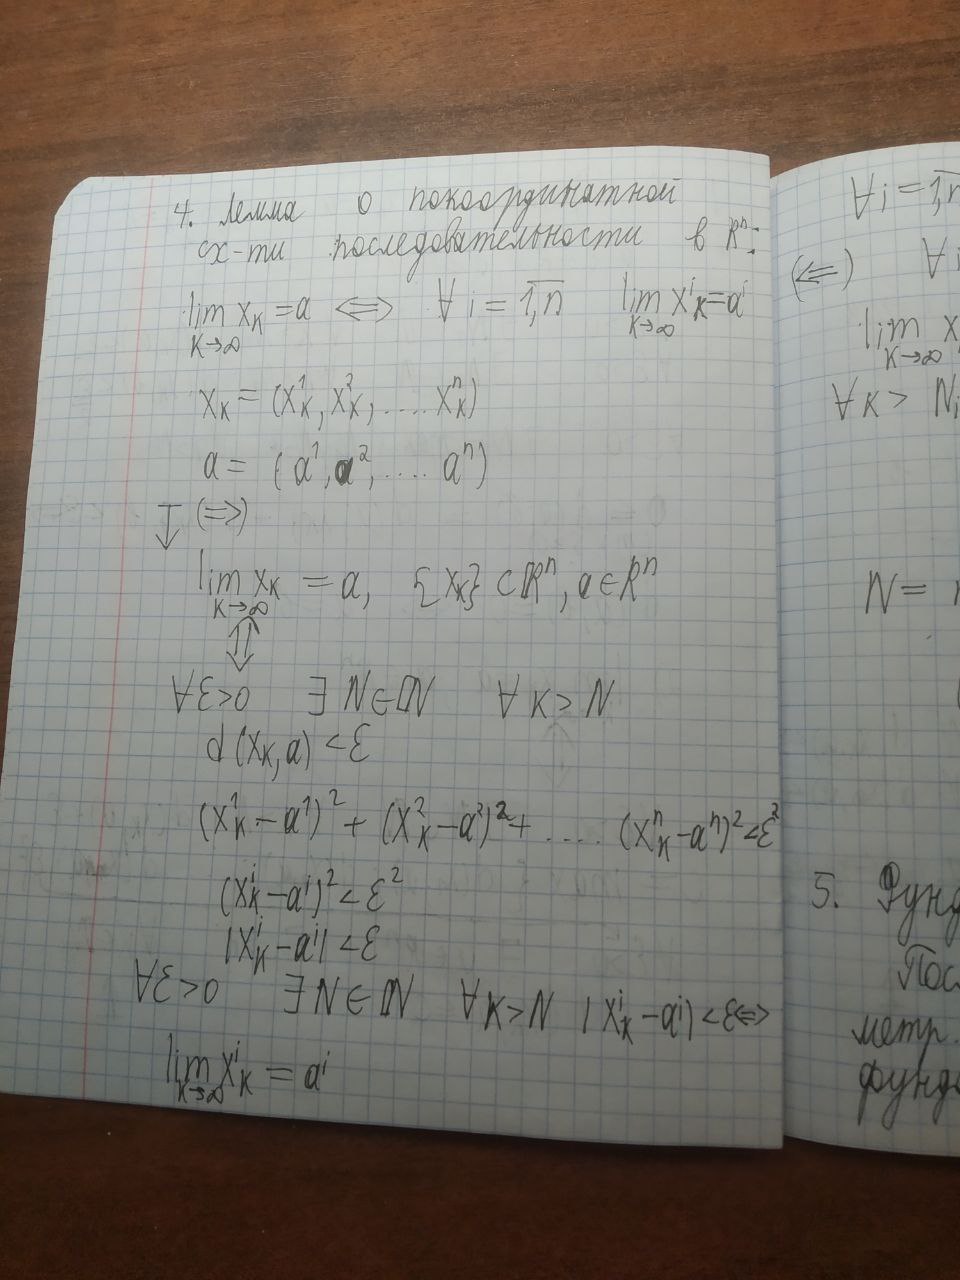 4. Лемма о покоординатной
сх-ти последовательности в Rⁿ:
lim xₖ = a ⟺ ∀ i = 1,n̅ lim xⁱₖ = aⁱ
k→∞ k→∞
xₖ = (x¹ₖ, x²ₖ, .... xⁿₖ)
a = (a¹, a², .... aⁿ)
(⇒)
lim xₖ = a, {xₖ} ⊂ Rⁿ, a ∈ Rⁿ
k→∞
⇕
∀ε>0 ∃ N∈ℕ ∀ k > N
d(xₖ, a) < ε
(x¹ₖ - a¹)² + (x²ₖ - a²)² + .... (xⁿₖ - aⁿ)² < ε²
(xⁱₖ - aⁱ)² < ε²
|xⁱₖ - aⁱ| < ε
∀ε>0 ∃ N∈ℕ ∀ k > N |xⁱₖ - aⁱ| < ε ⟺
lim xⁱₖ = aⁱ
k→∞
∀ i = 1,n
(⇐) ∀ i
lim x
k→∞
∀ k > Nᵢ
N =
5. Фунд
Пос
метр.
фунд